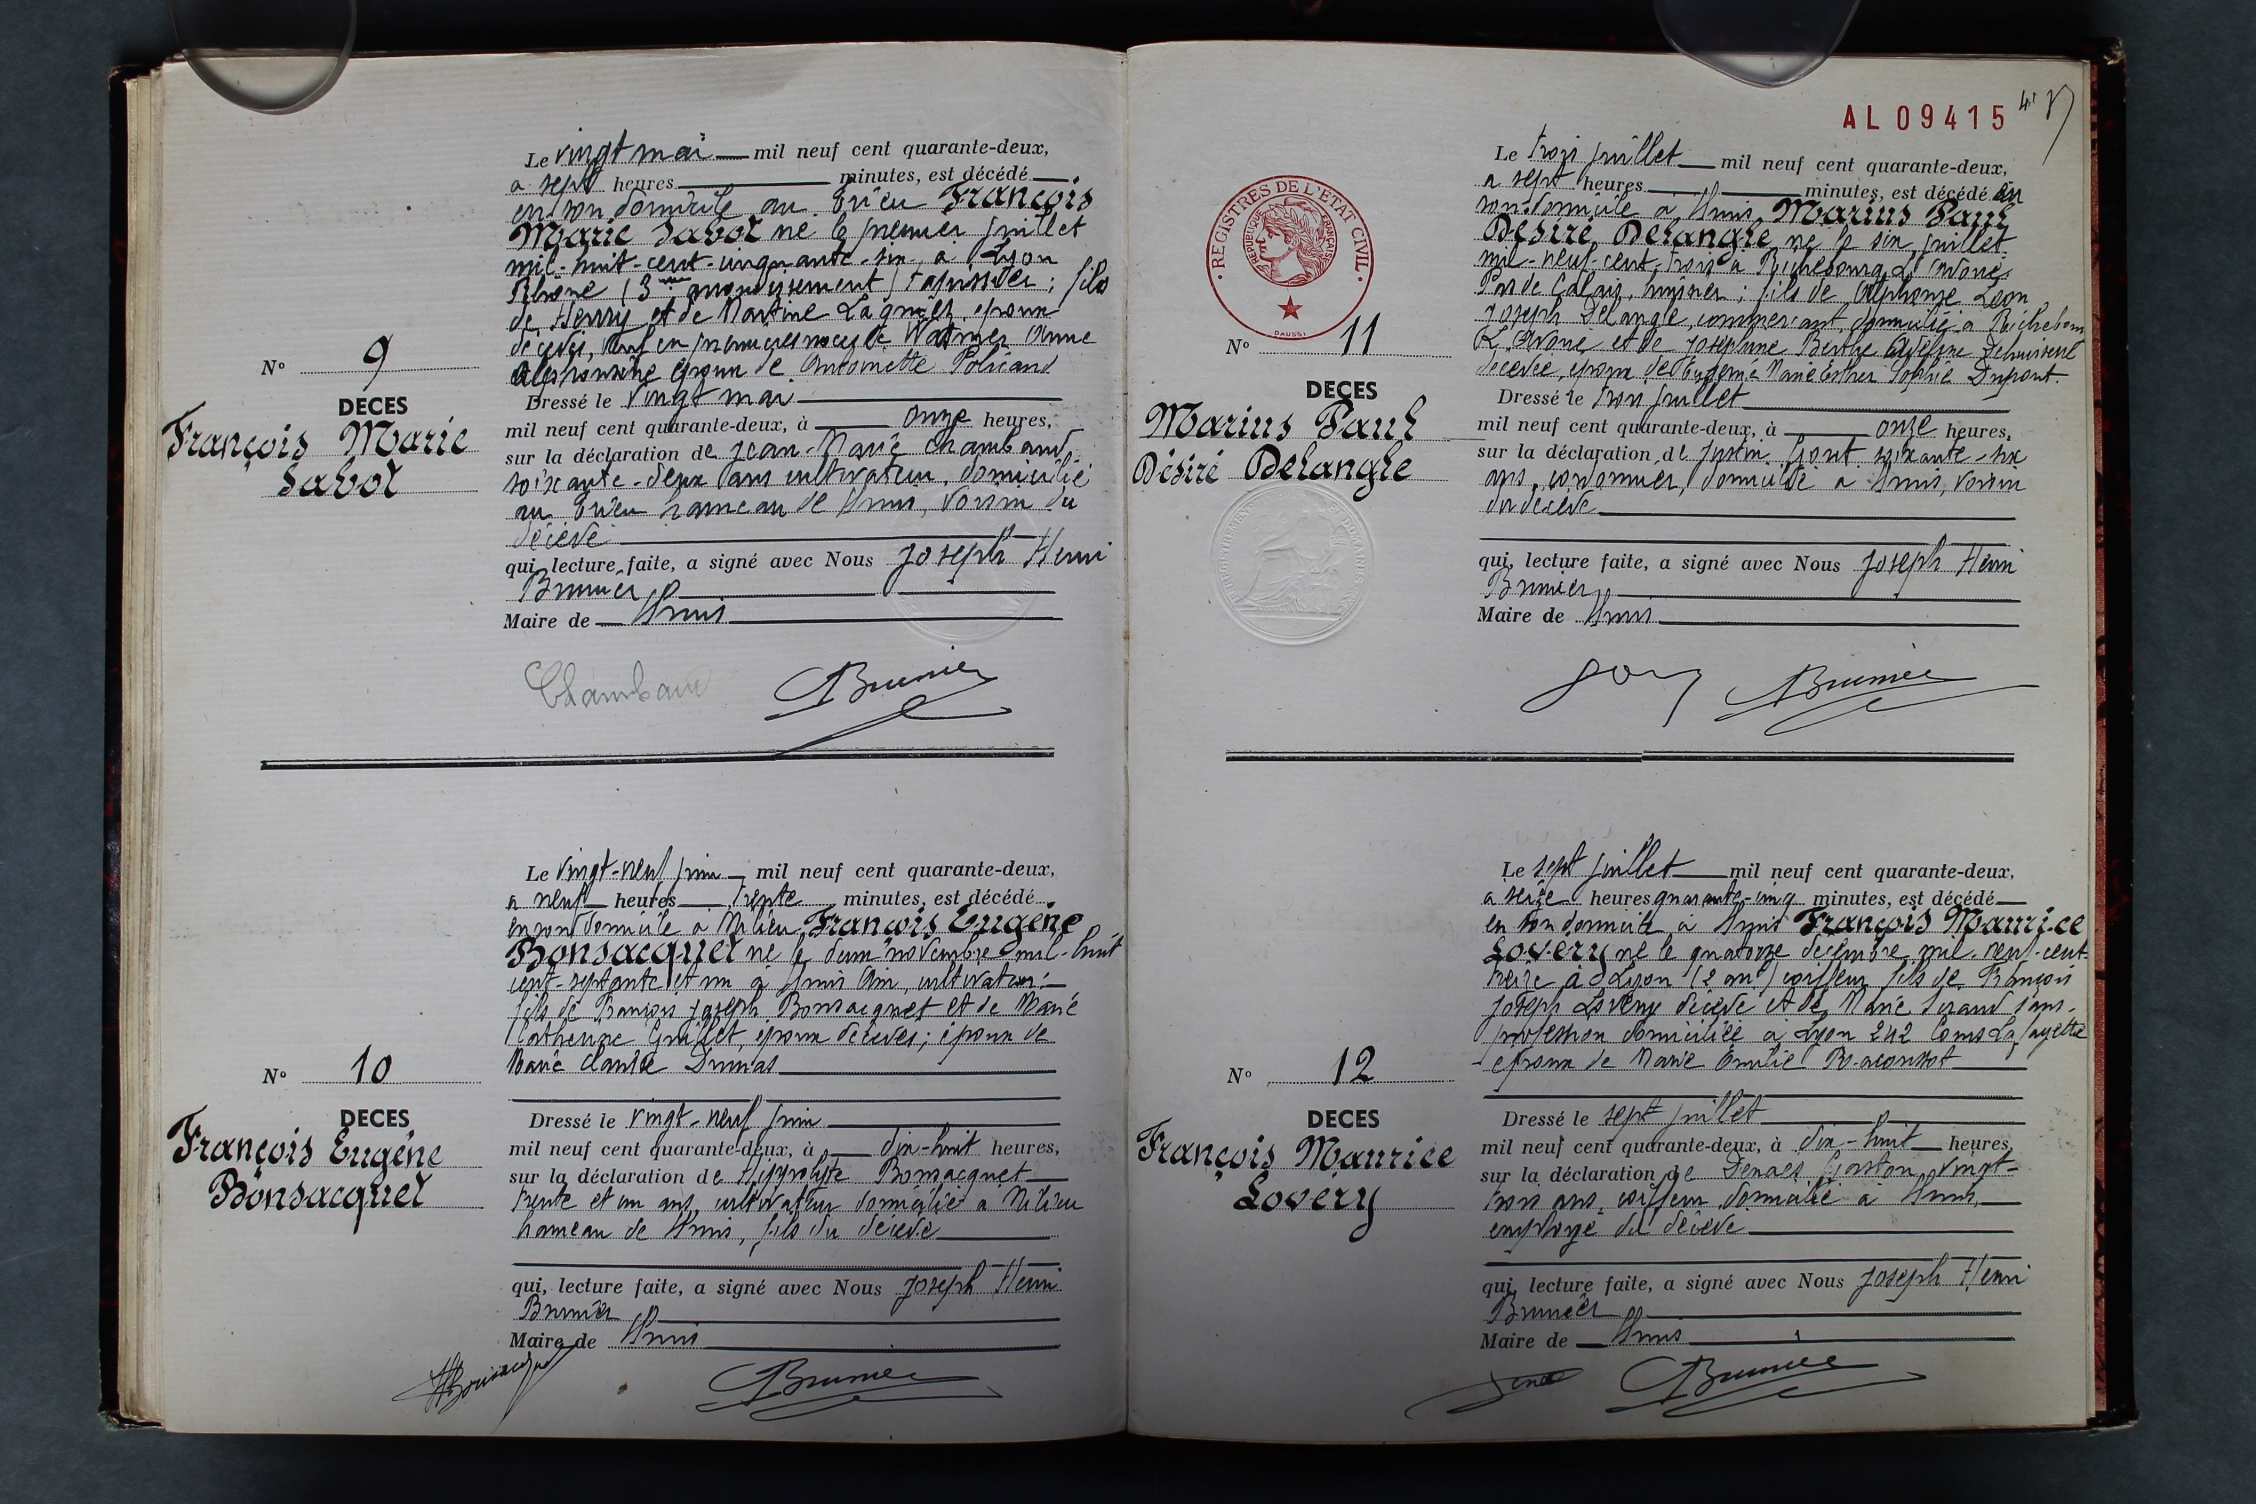 Le vingt mai mil neuf cent quarante-deux,
a sept heures minutes, est décédé
en son domicile au François
Marie Sabot né le premier juillet
mil-huit-cent-cinquante-six, à Lyon
Rhône (3me arrondissement) tapissier; fils
de Henry et de Martine époux
décédés, veuf en premières noces de Anne
Alphonsine époux de Antoinette
Nº 9
DECES
François Marie
Sabot
Dressé le vingt mai
mil neuf cent quarante-deux, à onze heures,
sur la déclaration de Jean-Marie Chambaud
soixante-deux ans cultivateur, domicilié
au hameau de voisin du
décédé
qui, lecture faite, a signé avec Nous Joseph Henri
Brunier
Maire de
Chambaud Brunier
Le vingt-neuf juin mil neuf cent quarante-deux,
a neuf heures trente minutes, est décédé
en son domicile à François Eugène
Bonsacquet né le deux novembre mil-huit
cent-septante et un à Ain, cultivateur;
fils de François Joseph Bonsacquet et de Marie
Catherine Guillet, époux décédés; époux de
Marie Claudie Dumas
Nº 10
DECES
François Eugène
Bonsacquet
Dressé le vingt-neuf juin
mil neuf cent quarante-deux, à dix-huit heures,
sur la déclaration de Hippolyte Bonsacquet
trente et un ans, cultivateur domicilié à
hameau de fils du décédé
qui, lecture faite, a signé avec Nous Joseph Henri
Brunier
Maire de
HBonsacquet Brunier
AL 09415
REGISTRES DE L'ETAT CIVIL
REPUBLIQUE FRANÇAISE
DAUSSY
Le trois juillet mil neuf cent quarante-deux,
a sept heures minutes, est décédé en
son domicile à Marius Paul
Désiré Delangle né le six juillet
mil-neuf-cent-trois à Richebourg L'Avoué
Pas de Calais, fils de Alphonse Léon
Joseph Delangle, commerçant, domicilié à Richebourg
L'Avoué et de Joséphine Berthe
décédée, époux de Eugénie Marie Esther Sophie Dupont.
Nº 11
DECES
Marius Paul
Désiré Delangle
Dressé le trois juillet
mil neuf cent quarante-deux, à onze heures,
sur la déclaration de Justin soixante-six
ans, cordonnier, domicilié à voisin
du décédé
qui, lecture faite, a signé avec Nous Joseph Henri
Brunier
Maire de
Brunier
Le sept juillet mil neuf cent quarante-deux,
a seize heures quarante-cinq minutes, est décédé
en son domicile à François Maurice
Lovéry né le quatorze décembre mil-neuf-cent-
treize à Lyon (2 arr) coiffeur fils de François
Joseph Lovéry décédé et de Marie sans
profession domiciliée à Lyon 242 Cours Lafayette
époux de Marie Emilie
Nº 12
DECES
François Maurice
Lovéry
Dressé le sept juillet
mil neuf cent quarante-deux, à dix-huit heures,
sur la déclaration de Gaston, vingt-
trois ans, coiffeur, domicilié à
employé du décédé
qui, lecture faite, a signé avec Nous Joseph Henri
Brunier
Maire de
Brunier